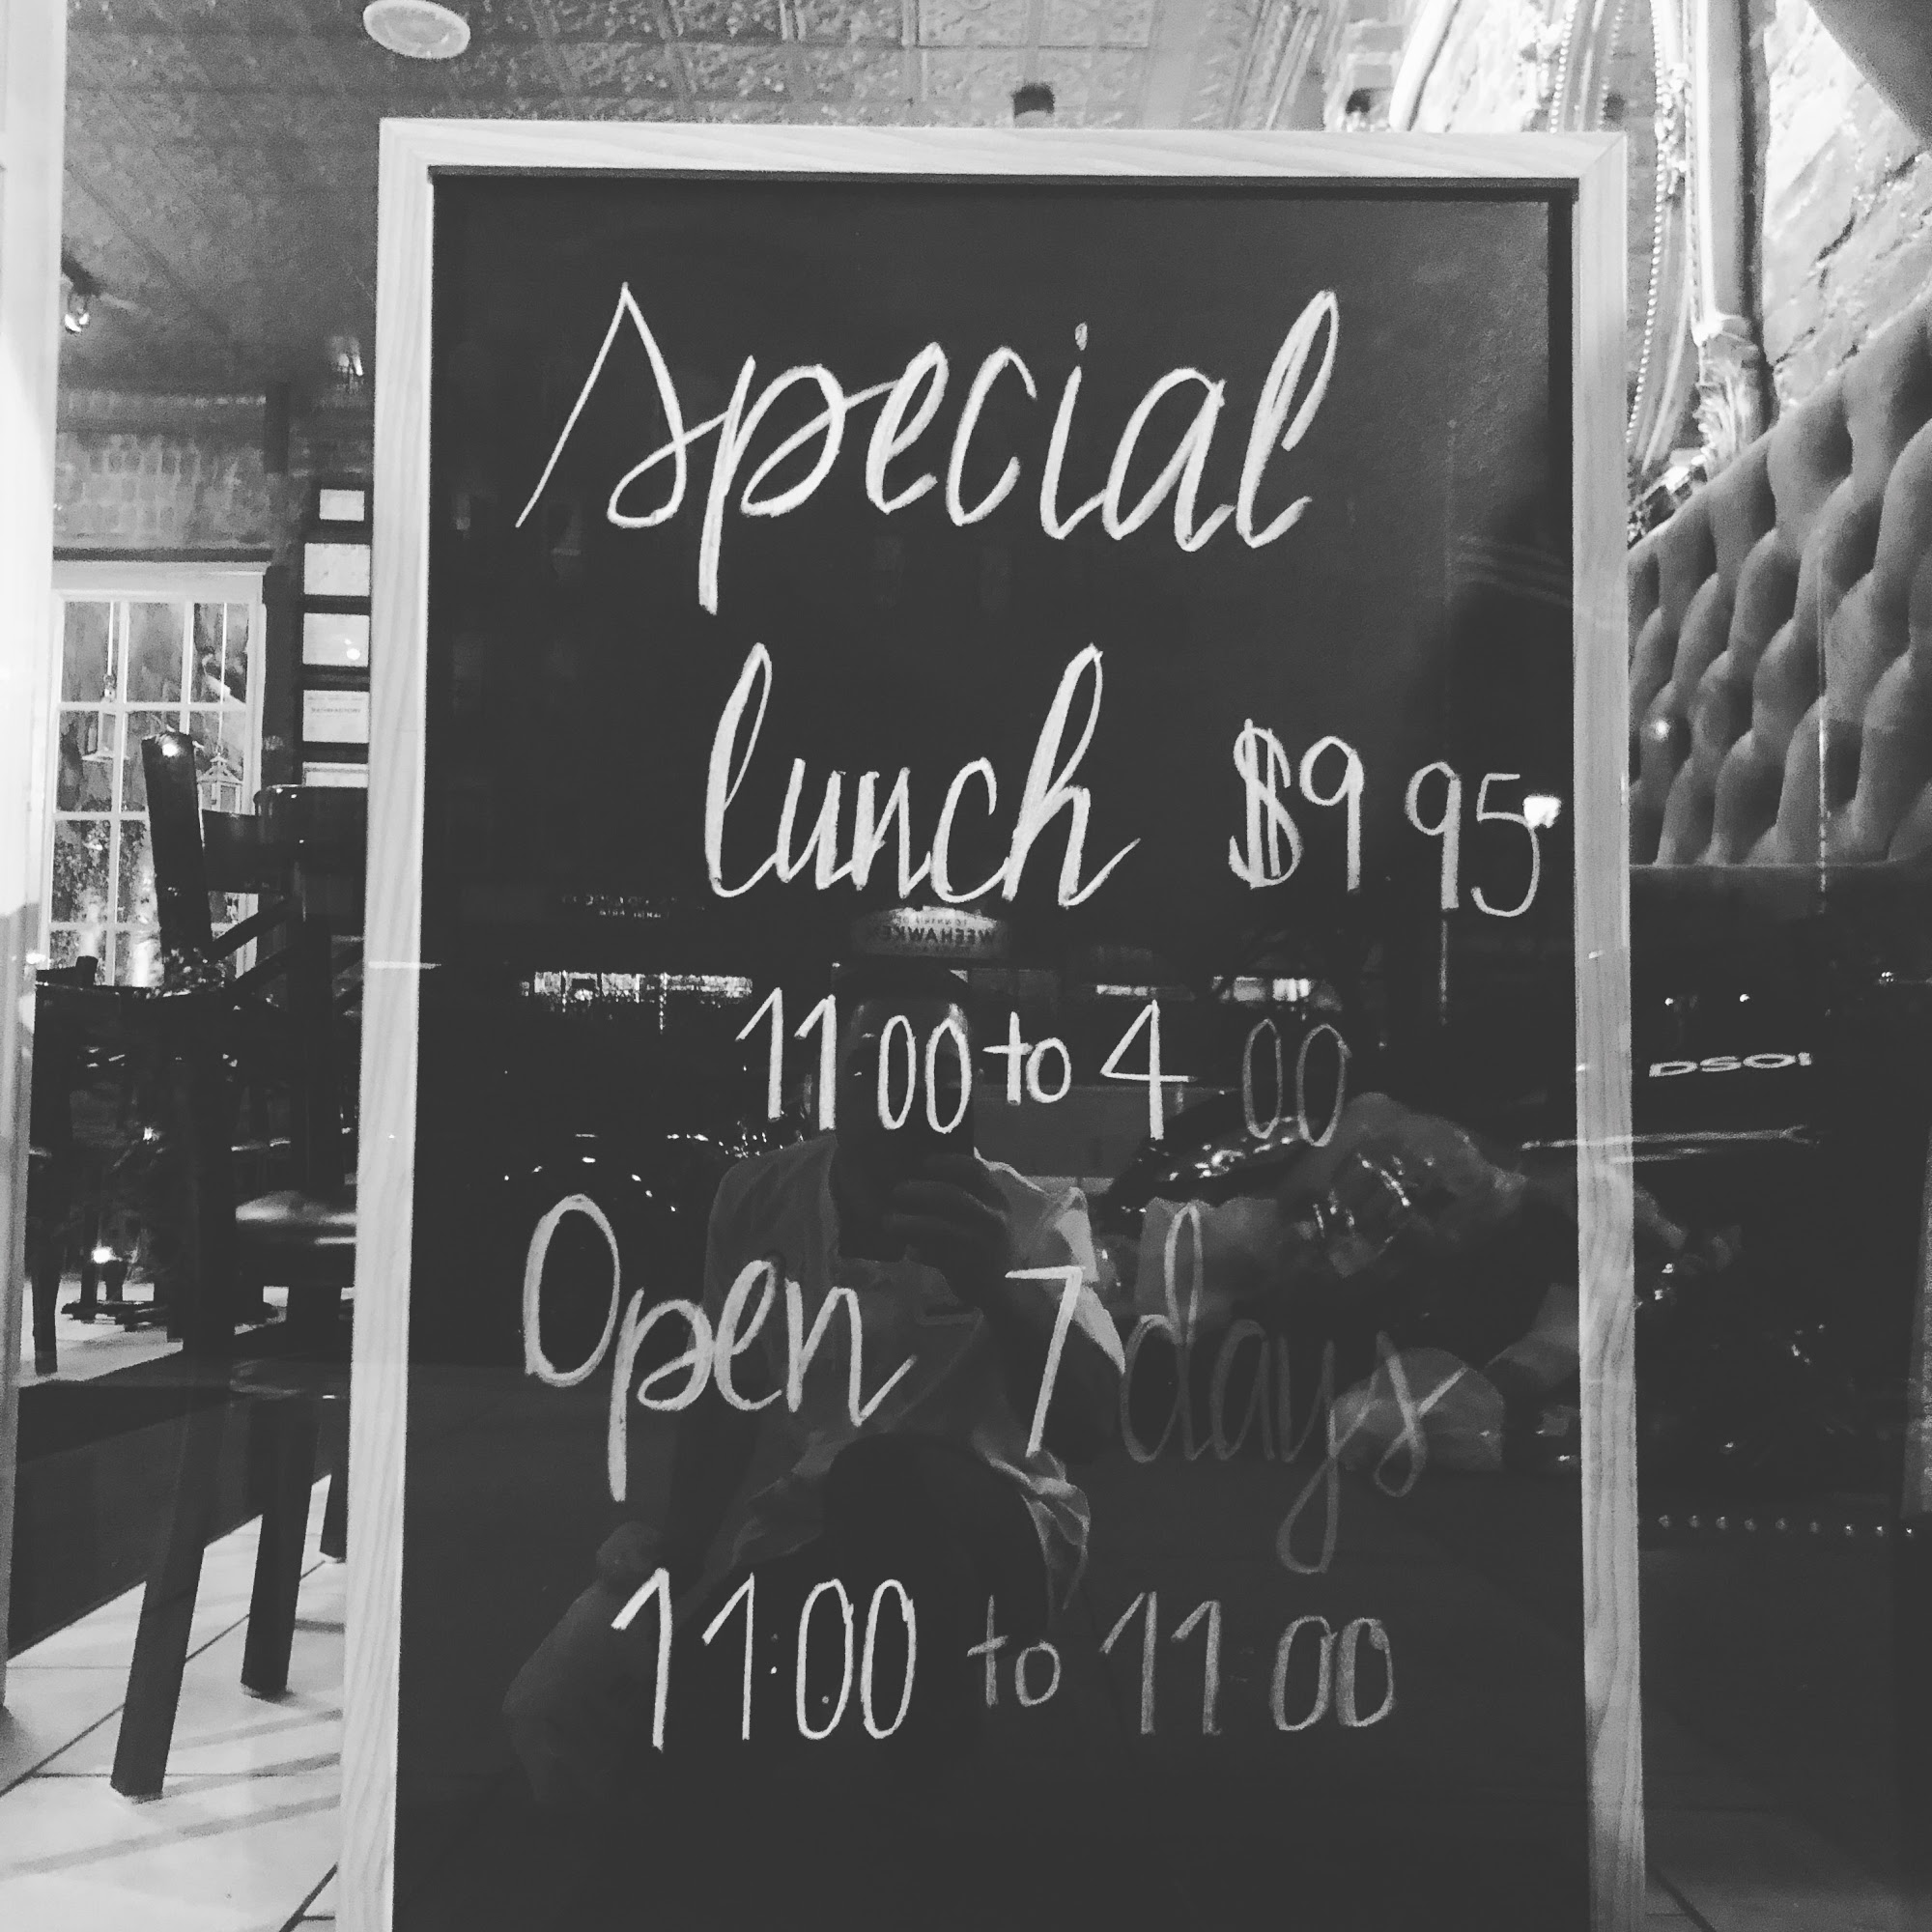 Special
lunch $9 95
11 00 to 4 00
Open 7 days
11:00 to 11 00